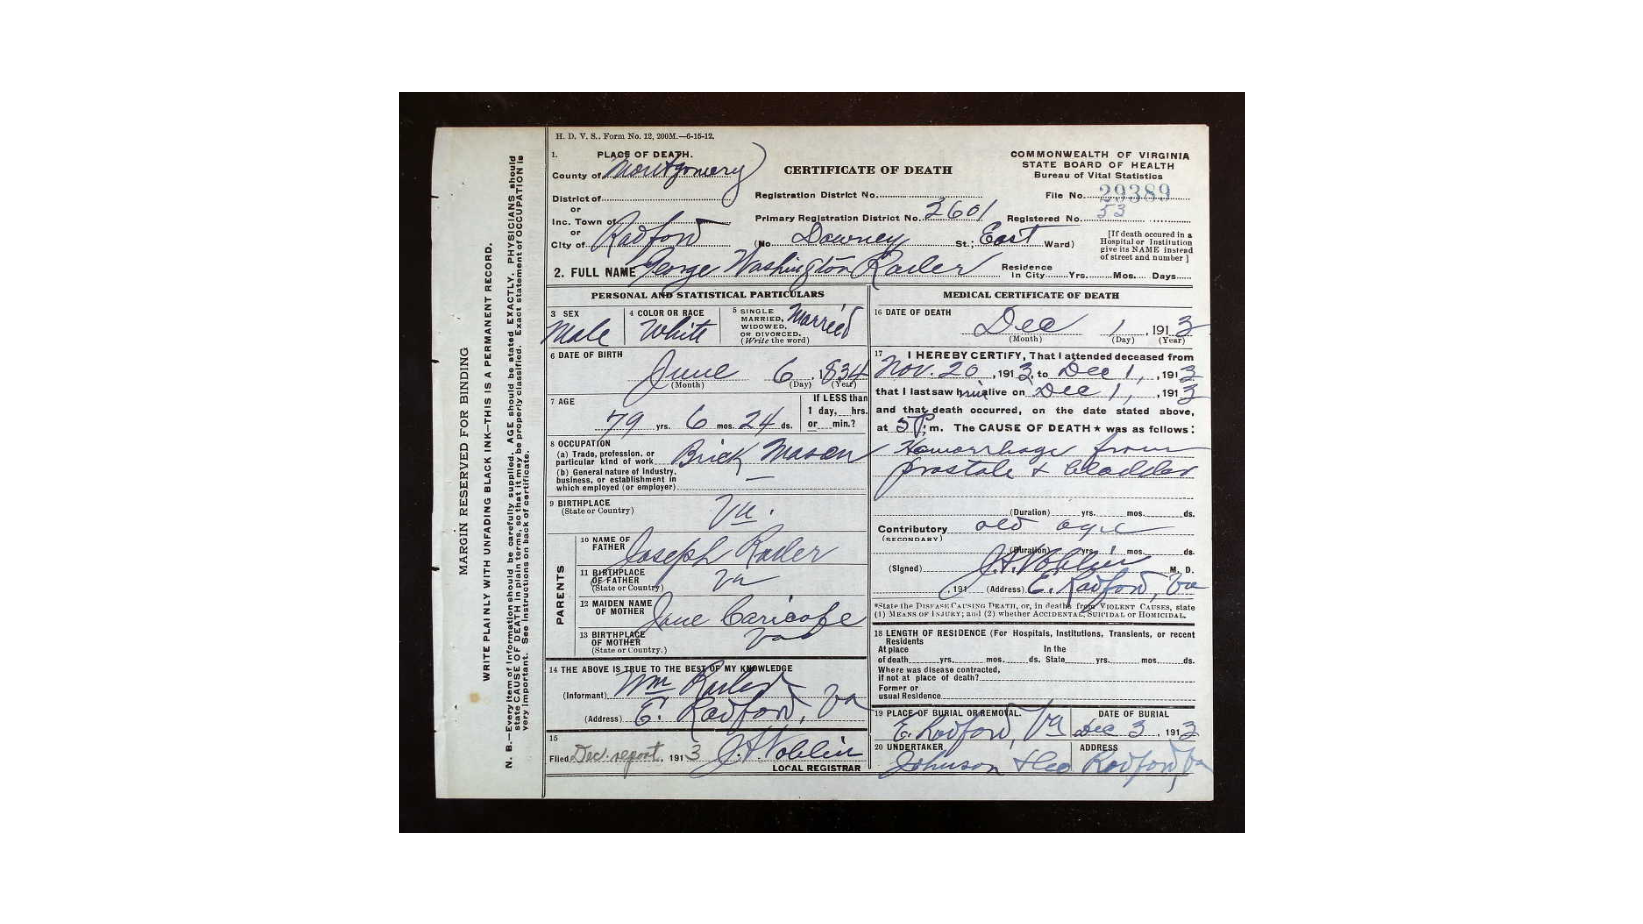 H. D. V. S., Form No. 12, 200M.—6-15-12.
1. PLACE OF DEATH.
County of Montgomery
District of
or
Inc. Town of
or
City of Radford
CERTIFICATE OF DEATH
Registration District No.
Primary Registration District No. 2601
(No. Downey St.; East Ward)
COMMONWEALTH OF VIRGINIA
STATE BOARD OF HEALTH
Bureau of Vital Statistics
File No. 29389
Registered No. 53
[If death occured in a
Hospital or Institution
give its NAME instead
of street and number]
2. FULL NAME George Washington Railer
Residence
In City Yrs. Mos. Days
PERSONAL AND STATISTICAL PARTICULARS
3 SEX
Male
4 COLOR OR RACE
White
5 SINGLE
MARRIED,
WIDOWED,
OR DIVORCED.
(Write the word)
Married
6 DATE OF BIRTH
June 6, 1834
(Month) (Day) (Year)
7 AGE
79 yrs. 6 mos. 24 ds.
If LESS than
1 day, hrs.
or min.?
8 OCCUPATION
(a) Trade, profession, or
particular kind of work Brick Mason
(b) General nature of Industry,
business, or establishment in
which employed (or employer) —
9 BIRTHPLACE
(State or Country) Va.
PARENTS
10 NAME OF
FATHER Joseph Railer
11 BIRTHPLACE
OF FATHER
(State or Country) Va
12 MAIDEN NAME
OF MOTHER Jane Caricofe
13 BIRTHPLACE
OF MOTHER
(State or Country.) Va
14 THE ABOVE IS TRUE TO THE BEST OF MY KNOWLEDGE
(Informant) Wm Railer
(Address) E. Radford, Va
15
Filed Dec. report, 1913 J. A. Noblin
LOCAL REGISTRAR
MEDICAL CERTIFICATE OF DEATH
16 DATE OF DEATH
Dec 1, 1913
(Month) (Day) (Year)
17 I HEREBY CERTIFY, That I attended deceased from
Nov. 20, 1913, to Dec 1, 1913
that I last saw him alive on Dec 1, 1913
and that death occurred, on the date stated above,
at 5 P. m. The CAUSE OF DEATH★ was as follows:
Hemorrhage from
prostate & bladder
(Duration) yrs. mos. ds.
Contributory old age
(SECONDARY)
(Duration) yrs. mos. ds.
(Signed) J. A. Noblin M. D.
, 191 (Address) E. Radford, Va
*State the DISEASE CAUSING DEATH, or, in deaths from VIOLENT CAUSES, state
(1) MEANS OF INJURY; and (2) whether ACCIDENTAL, SUICIDAL or HOMICIDAL.
18 LENGTH OF RESIDENCE (For Hospitals, Institutions, Transients, or recent
Residents
At place In the
of death yrs. mos. ds. State yrs. mos. ds.
Where was disease contracted,
if not at place of death?
Former or
usual Residence
19 PLACE OF BURIAL OR REMOVAL.
E. Radford, Va
DATE OF BURIAL
Dec 3, 1913
20 UNDERTAKER
Johnson
ADDRESS
Radford, Va
MARGIN RESERVED FOR BINDING
WRITE PLAINLY WITH UNFADING BLACK INK—THIS IS A PERMANENT RECORD.
N. B.—Every item of Information should be carefully supplied. AGE should be stated EXACTLY. PHYSICIANS should
state CAUSE OF DEATH in plain terms, so that it may be properly classified. Exact statement of OCCUPATION is
very important. See instructions on back of certificate.